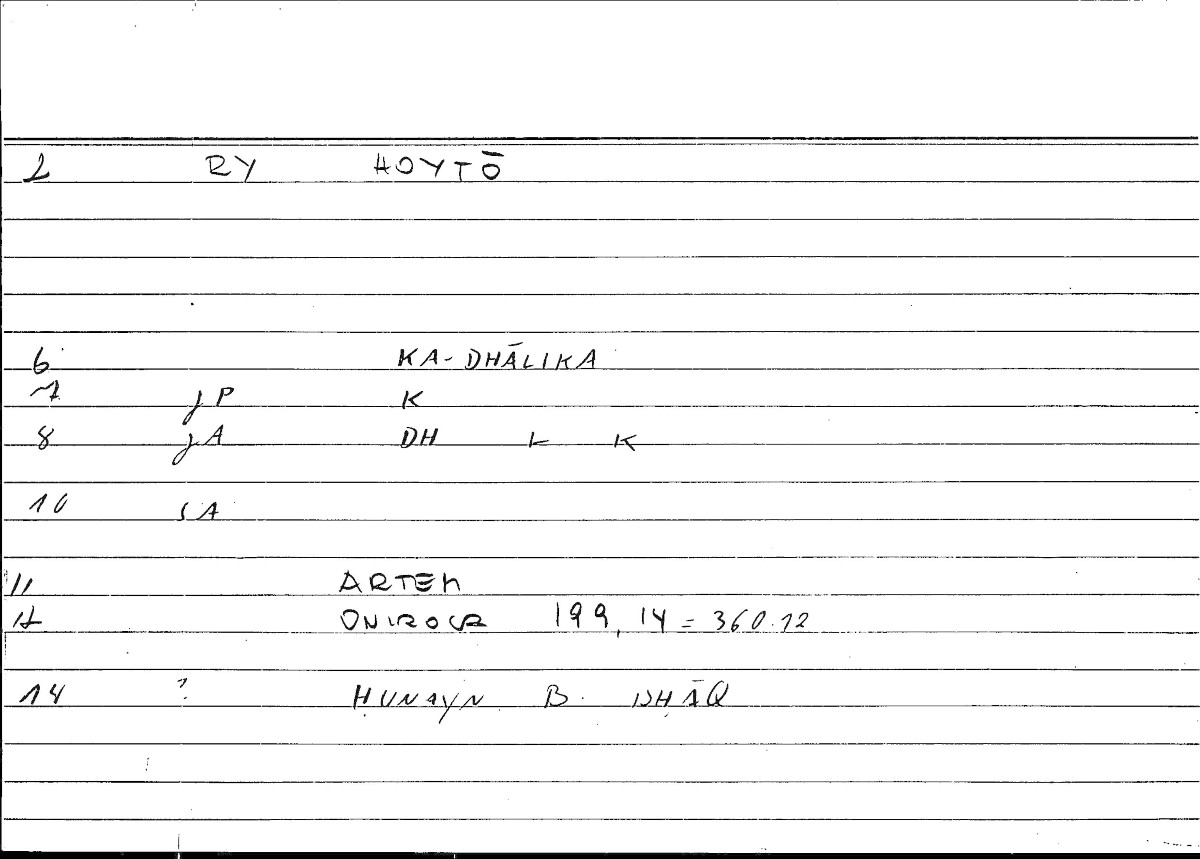 2 RY HOYTŌ
6 KA-DHĀLIKA
7 jP K
8 jA DH L K
10 SA
11 ARTEM
12 ONIROCR 199, 14 = 360.12
14 ? ḤUNAYN B. ISḤĀQ